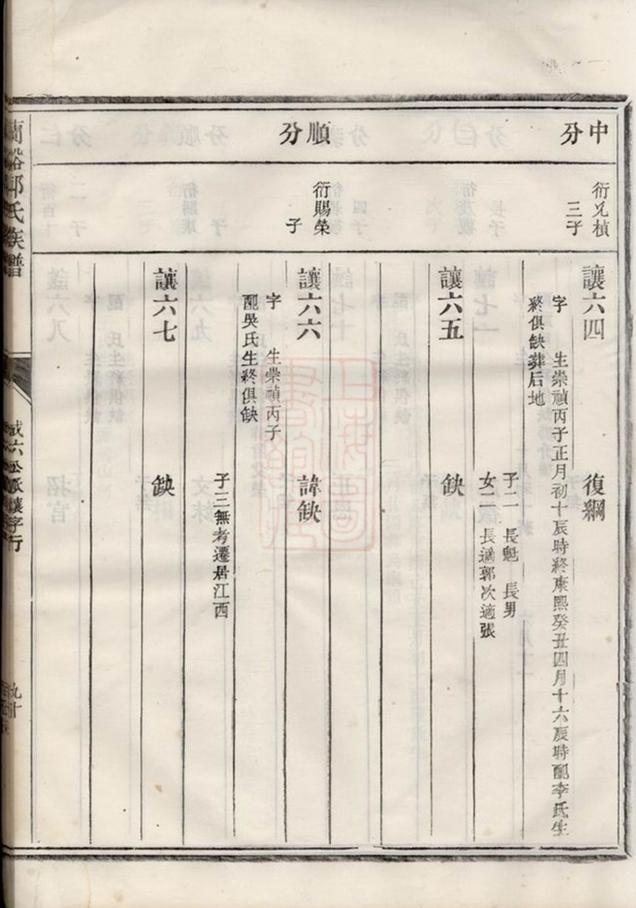 中分
衍兄楨
三子
讓六四　復綱
字　生崇禎丙子正月初十辰時終康熙癸丑四月十六辰時配李氏生
終俱缺葬后地
子二　長魁　長男
女二　長適郭次適張
讓六五　缺
順分
衍賜榮
子
讓六六　諱缺
字　生崇禎丙子
配吳氏生終俱缺
子三無考遷居江西
讓六七　缺
氏族譜
讓字行